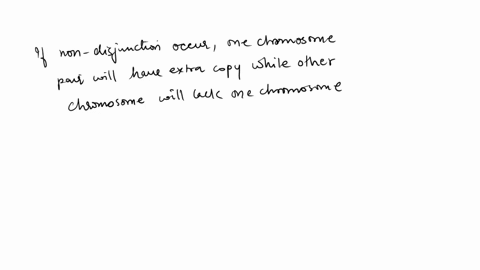 If non-disjunction occur, one chromosome
pair will have extra copy while other
chromosome will lack one chromosome